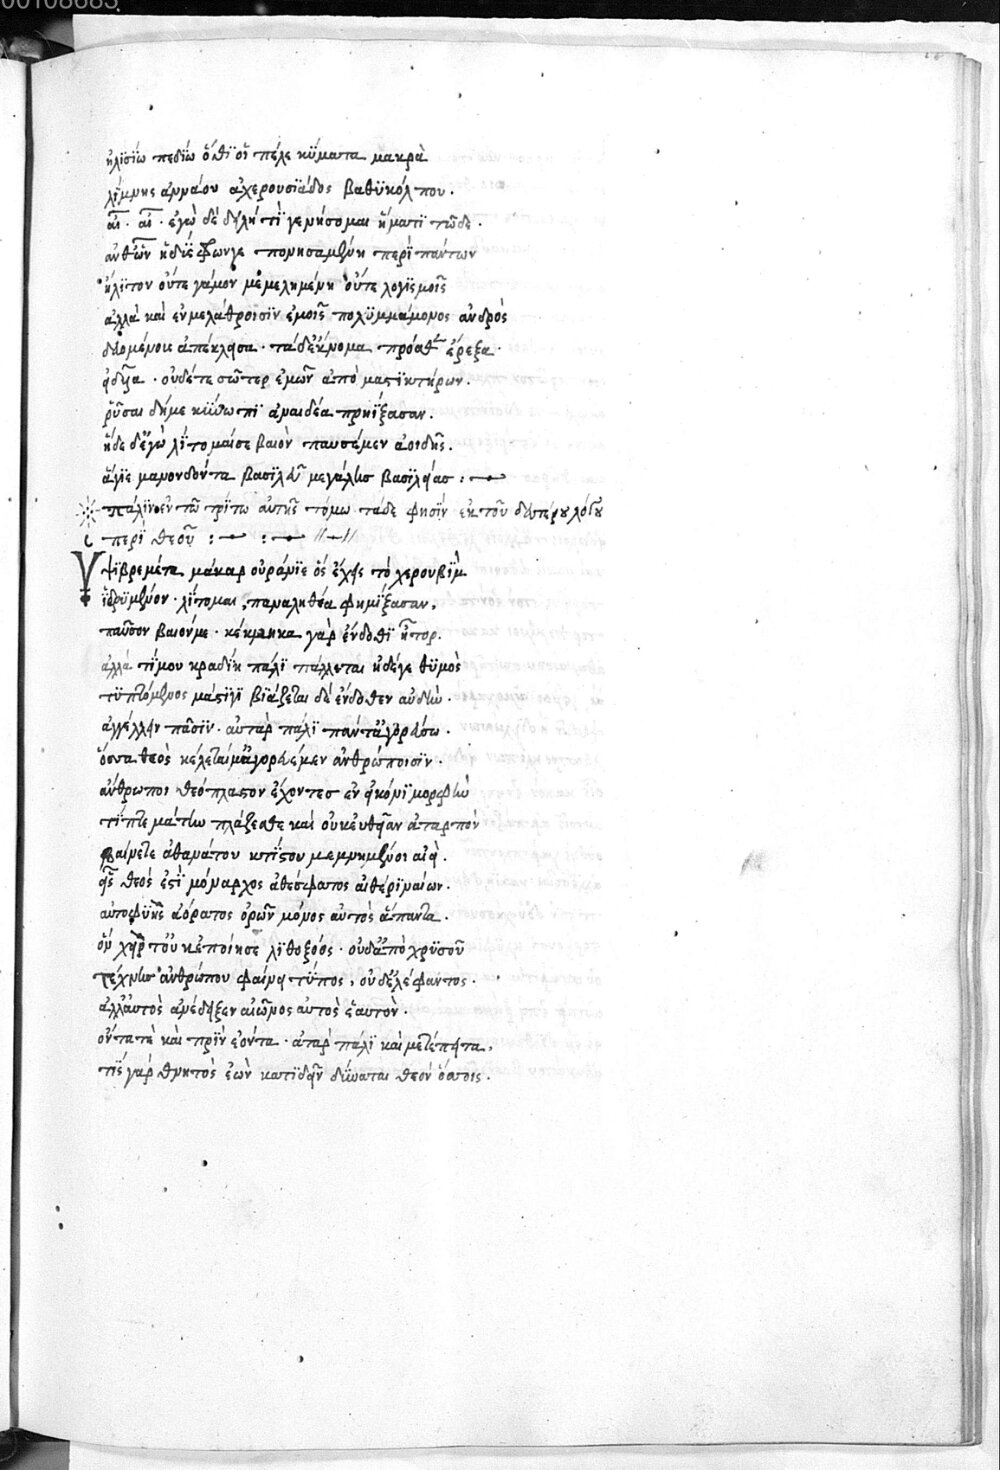 00108683
ἠλϊσίω πεδίω ὅθϊ οἱ πέλε κύματα μακρὰ
λίμνης ἀννάου ἀχερουσϊάδος βαθϋκόλπου.
αἲ. αἲ. ἐγὼ δὲ δειλή τι γενήσομαι ἤματϊ τῶδε.
ἀνθῶν ἡ δϊέφωνγε πονησαμένη περὶ πάντων
ἤλϊτον οὔτε γάμον μεμελημένη οὔτε λογϊσμοῖς
ἀλλὰ καὶ ἐν μελάθροισϊν ἐμοῖς πολϋμμάμονος ἀνδρὸς
δευομένοις ἀπέκλησα. τάδ' ἔκνομα πρόσθεν ἔρεξα.
εἰδυῖα. οὐδέτε σῶτερ ἐμῶν ἀπὸ μαστϊκτήρων.
ῥῦσαι δή με κϋνώπϊ ἀναιδέα πρηΐξασαν.
ἤδε δ' ἐγὼ λίτομαί σε βαιὸν παυσέμεν ἀοιδῆς.
ἅγιε μαννοδότα βασιλεῦ μεγάλης βασϊλείας :
πάλϊν ἐν τῶ τρίτω αὐτῆς τόμω τάδε φησὶν ἐκ τοῦ δευτέρου λόγου
περὶ θεοῦ :
Υψϊβρεμέτα μάκαρ οὐράνϊε ὃς ἔχεις τὸ χερουβὶμ
ἱδρϋμένον. λίτομαι, παναληθέα φημΐξασαν,
παῦσον βαιόν με. κέκμηκα γὰρ ἔνδοθϊ ἦτορ.
ἀλλὰ τί μου κραδίη πάλϊ πάλλεται ἠδέγε θϋμὸς
τϋπτόμενος μάστϊγι βϊάζεται ἔνδοθεν αὐδὴν.
ἀγγέλλειν πᾶσϊν. αὐτὰρ πάλϊ πάντ' ἀγορεύσω.
ὅσσα θεὸς κέλεταί μ' ἀγορευέμεν ἀνθρώποισϊν.
ἄνθρωποι θεόπλαστον ἔχοντες ἐν εἰκόνϊ μορφὴν
τίπτε μάτην πλάζεσθε καὶ οὐκ εὐθεῖαν ἀταρπὸν
βαίνετε ἀθανάτου κτίστου μεμνημένοι αἰεὶ.
εἷς θεός ἐστϊ μόναρχος ἀθέσφατος αἰθέρϊ ναίων.
αὐτοφϋὴς ἀόρατος ὁρῶν μόνος αὐτὸς ἅπαντα.
ὃν χεὶρ τοῦ κ' ἐποίησε λϊθοξόος. οὐδ' ἀπὸ χρϋσοῦ
τέχνης ἀνθρώπου φαίνει τύπος, οὐδ' ἐλέφαντος.
ἀλλ' αὐτὸς ἀνέδειξεν αἰῶνος αὐτὸς ἑαυτὸν.
ὄντα τὲ καὶ πρὶν ἐόντα. ἀτὰρ πάλϊ καὶ μετέπειτα,
τίς γὰρ θνητὸς ἐὼν κατϊδεῖν δύναται θεὸν ὄσσοις.